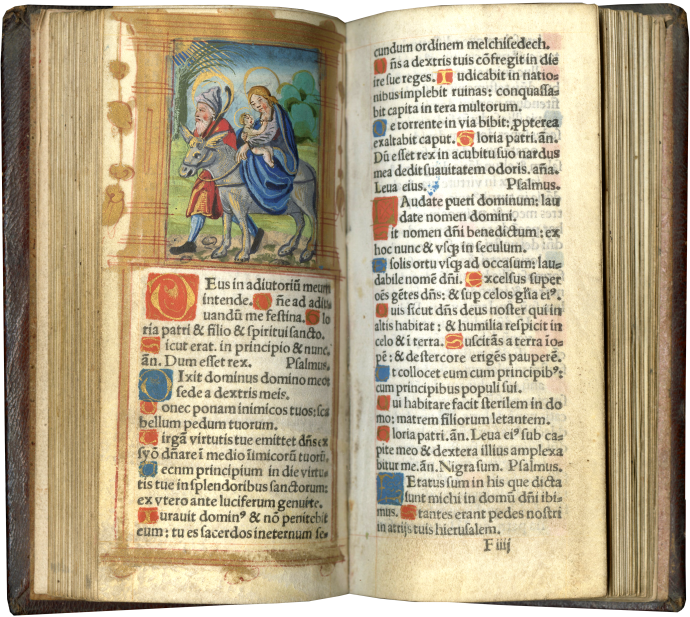 Eus in adiutoriũ meum
intende. Dñe ad adiu
uandũ me festina. Glo
ria patri & filio & spiritui sancto.
Sicut erat. in principio & nunc.
ãn. Dum esset rex. Psalmus.
DIxit dominus domino meo:
sede a dextris meis.
Donec ponam inimicos tuos: sca
bellum pedum tuorum.
Virgã virtutis tue emittet dñs ex
syõ dñare ĩ medio ĩimicorũ tuorũ.
Tecum principium in die virtu-
tis tue in splendoribus sanctorum:
ex vtero ante luciferum genui te.
Iurauit dominꝰ & nõ penitebit
eum: tu es sacerdos in eternum se-
cundum ordinem melchisedech.
Dñs a dextris tuis cõfregit in die
ire sue reges. Iudicabit in natio-
nibus implebit ruinas: conquassa-
bit capita in tera multorum.
De torrente in via bibit: ꝓpterea
exaltabit caput. Gloria patri. ãn.
Dũ esset rex in acubitu suo nardus
mea dedit suauitatem odoris. aña.
Leua eius. Psalmus.
LAudate pueri dominum: lau
date nomen domini.
Sit nomen dñi benedictum: ex
hoc nunc & vsq̃ in seculum.
A solis ortu vsq̃ ad occasum: lau-
dabile nomẽ dñi. Excelsus super
oẽs gẽtes dñs: & sup celos gl̃ia eiꝰ.
Quis sicut dñs deus noster qui in
altis habitat: & humilia respicit in
celo & i terra. Suscitãs a terra io-
pẽ: & de stercore erigẽs pauperẽ.
Vt collocet eum cum principibꝰ:
cum principibus populi sui.
Qui habitare facit sterilem in do
mo: matrem filiorum letantem.
Gloria patri. ãn. Leua eiꝰ sub ca-
pite meo & dextera illius amplexa
bitur me. ãn. Nigra sum. Psalmus.
LEtatus sum in his que dicta
sunt michi in domũ dñi ibi-
mus. Stantes erant pedes nostri
in atrijs tuis hierusalem.
F iiij